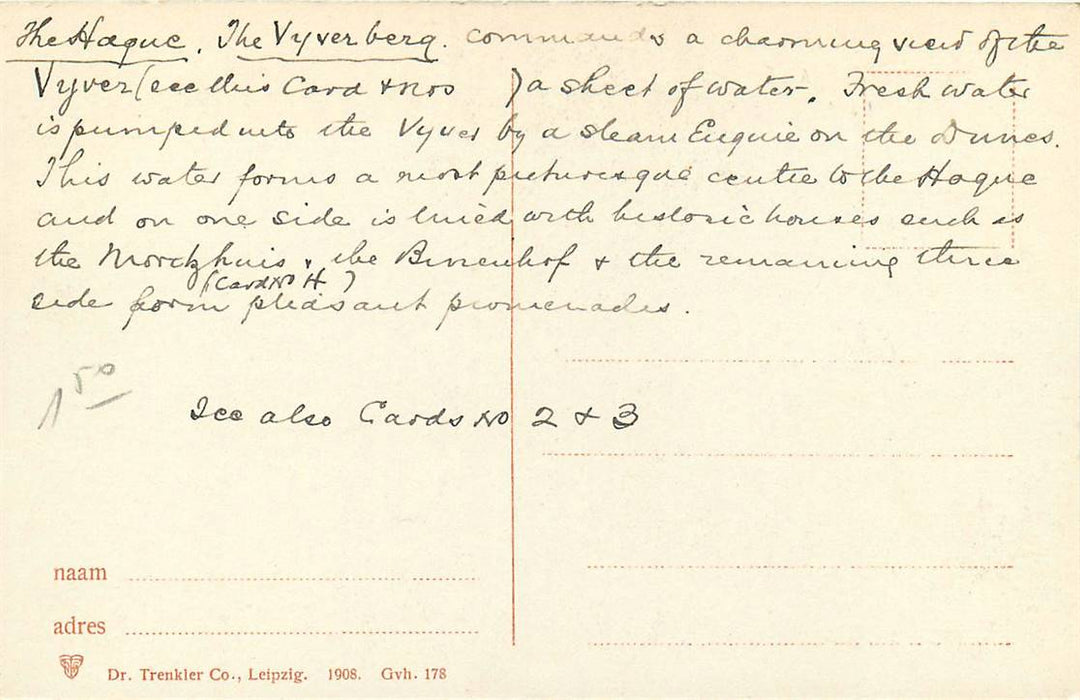 The Hague. The Vyverberg. commands a charming view of the
Vyver (see this Card & Nos ) a sheet of water. Fresh water
is pumped into the Vyver by a steam Engine on the Dunes.
This water forms a most picturesque centre to the Hague
and on one side is lined with historic houses such as
the Moritzhuis & the Binnenhof & the remaining three
(Card No 4)
side form pleasant promenades.
1 50
See also Cards No 2 & 3
naam
adres
Dr. Trenkler Co., Leipzig. 1908. Gvh. 178